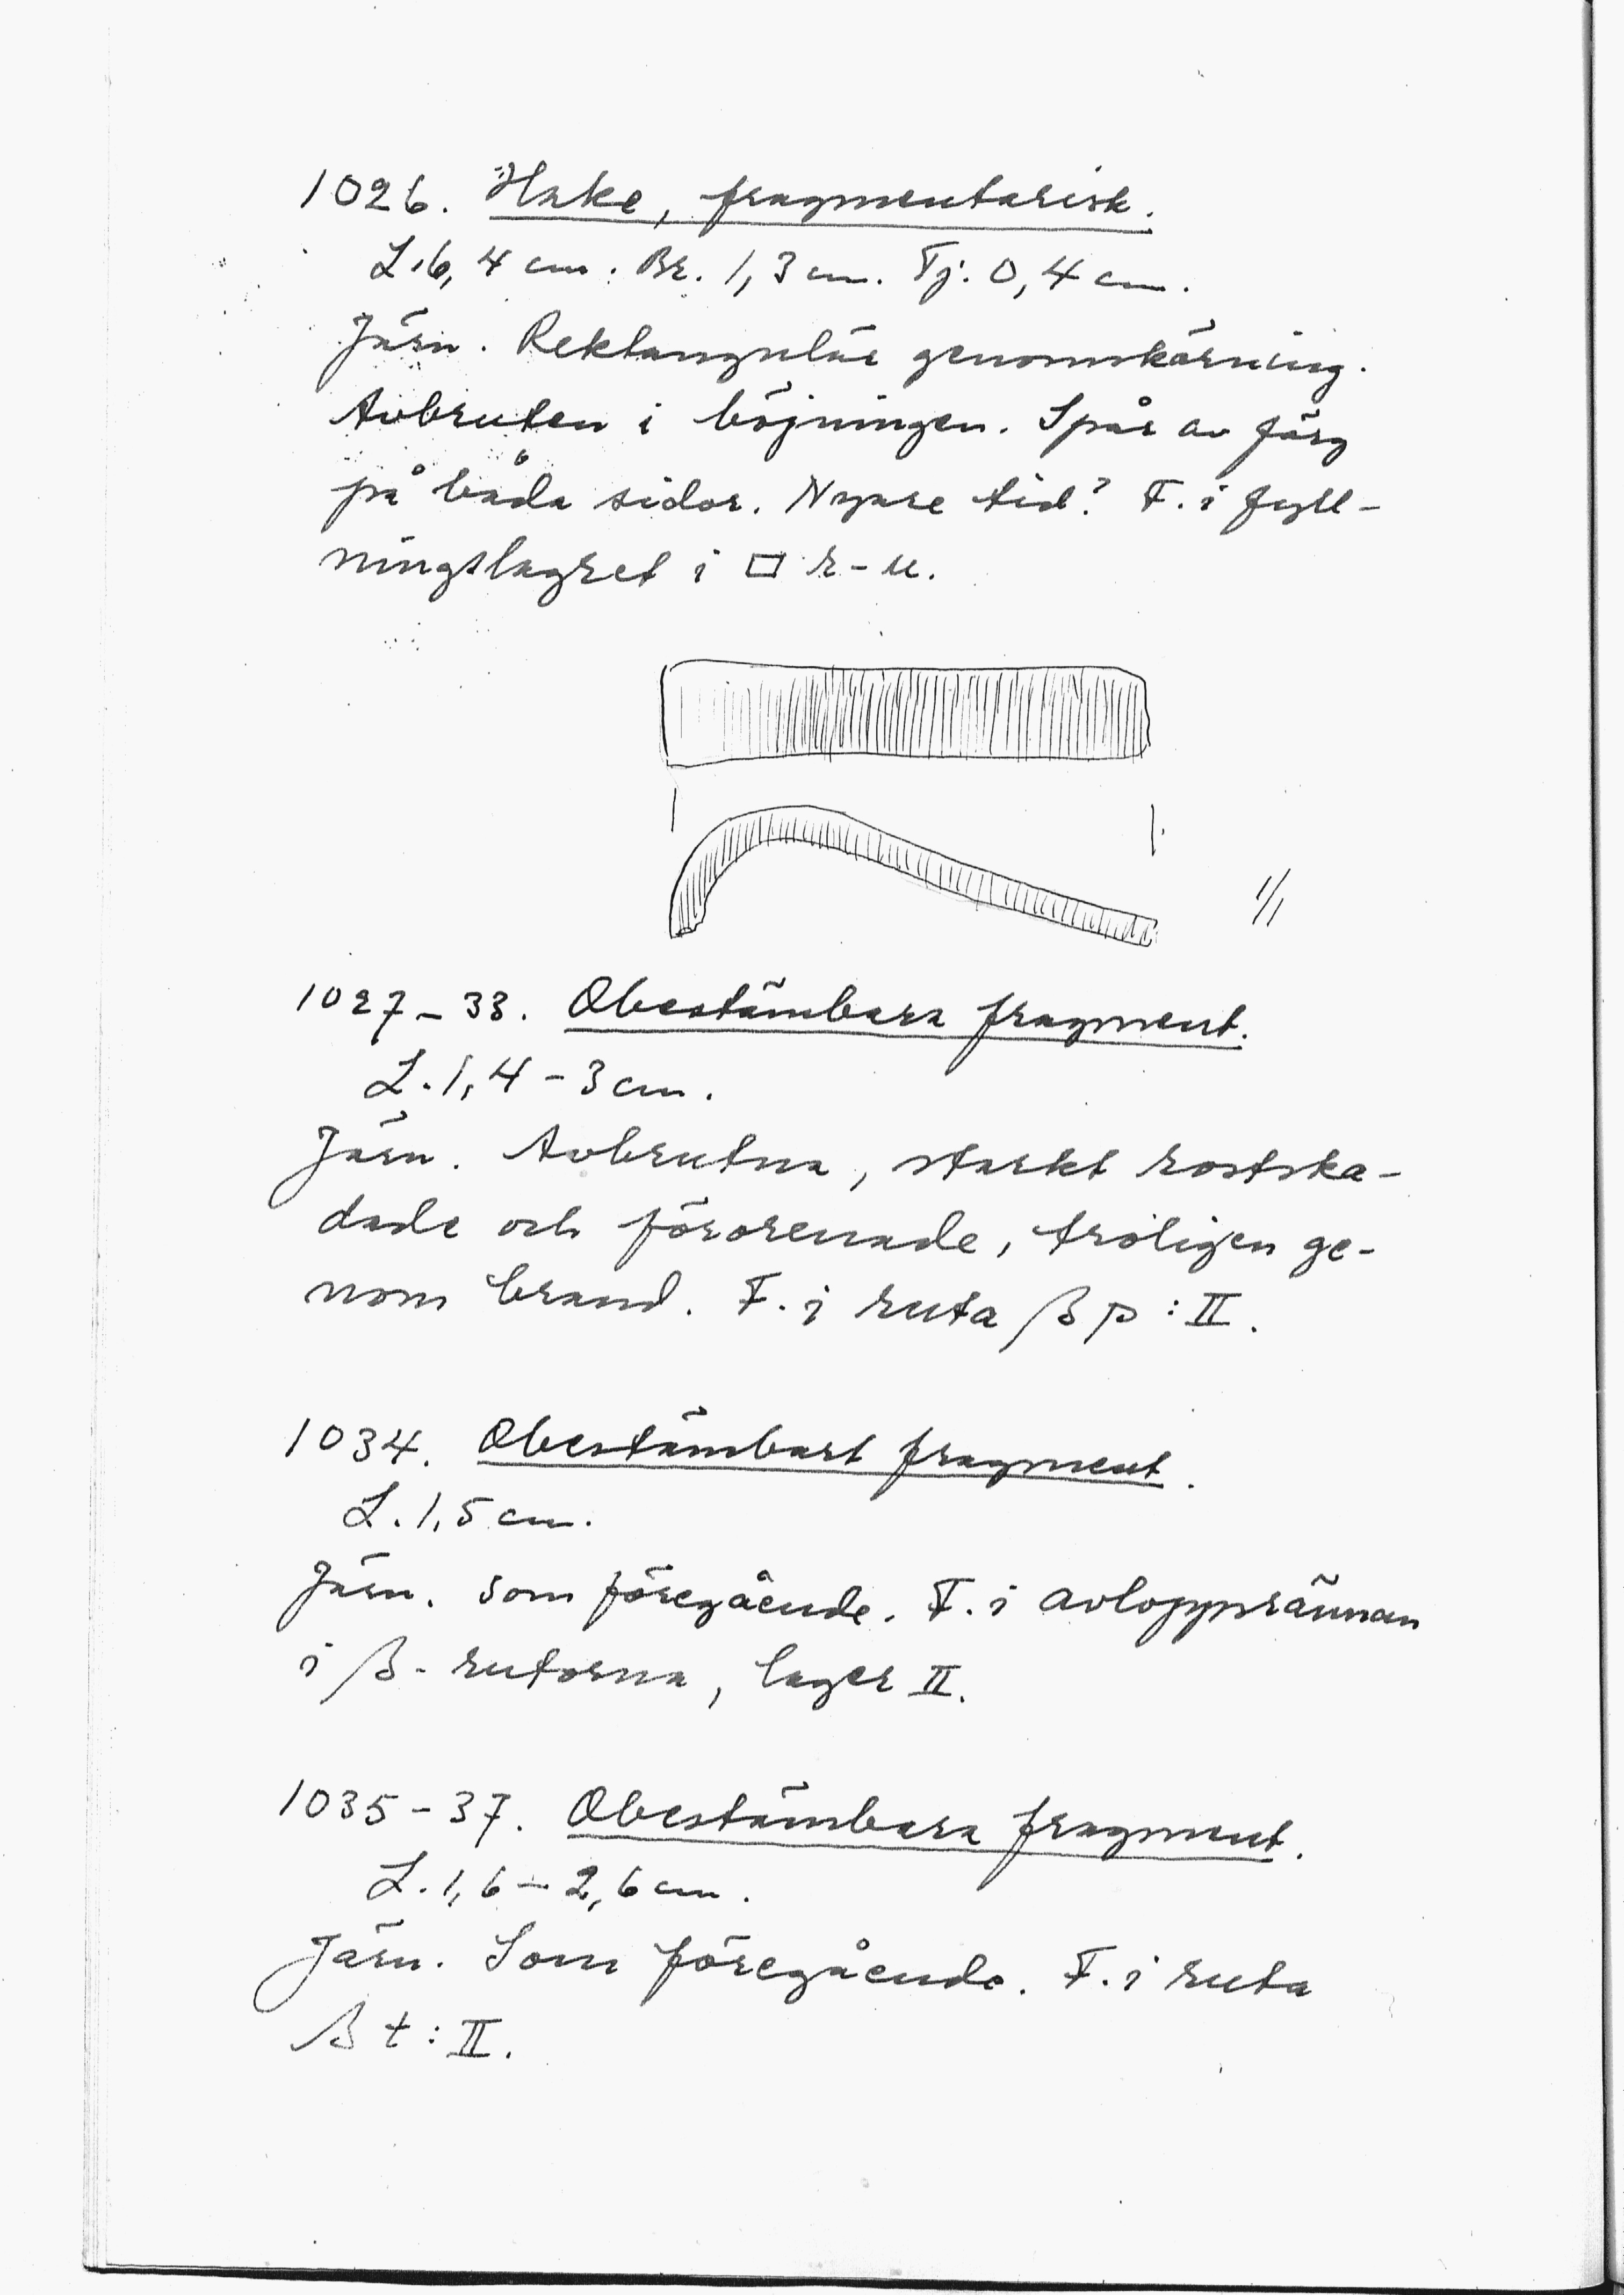 1026. Hake, fragmentarisk.
L. 6,4 cm. Br. 1,3 cm. Tj. 0,4 cm.
Järn. Rektangulär genomskärning.
Avbruten i böjningen. Spår av färg
på båda sidor. Nyare tid? F. i fyll-
ningslagret i □ r-u.
1/1
1027-33. Obestämbara fragment.
L. 1,4 - 3 cm.
Järn. Avbrutna, starkt rostska-
dade och förorenade, troligen ge-
nom brand. F. i ruta β p : II.
1034. Obestämbart fragment.
L. 1,5 cm.
Järn. Som föregående. F. i avloppsrännan
i β-rutorna, lager II.
1035-37. Obestämbara fragment.
L. 1,6 - 2,6 cm.
Järn. Som föregående. F. i ruta
β t : II.